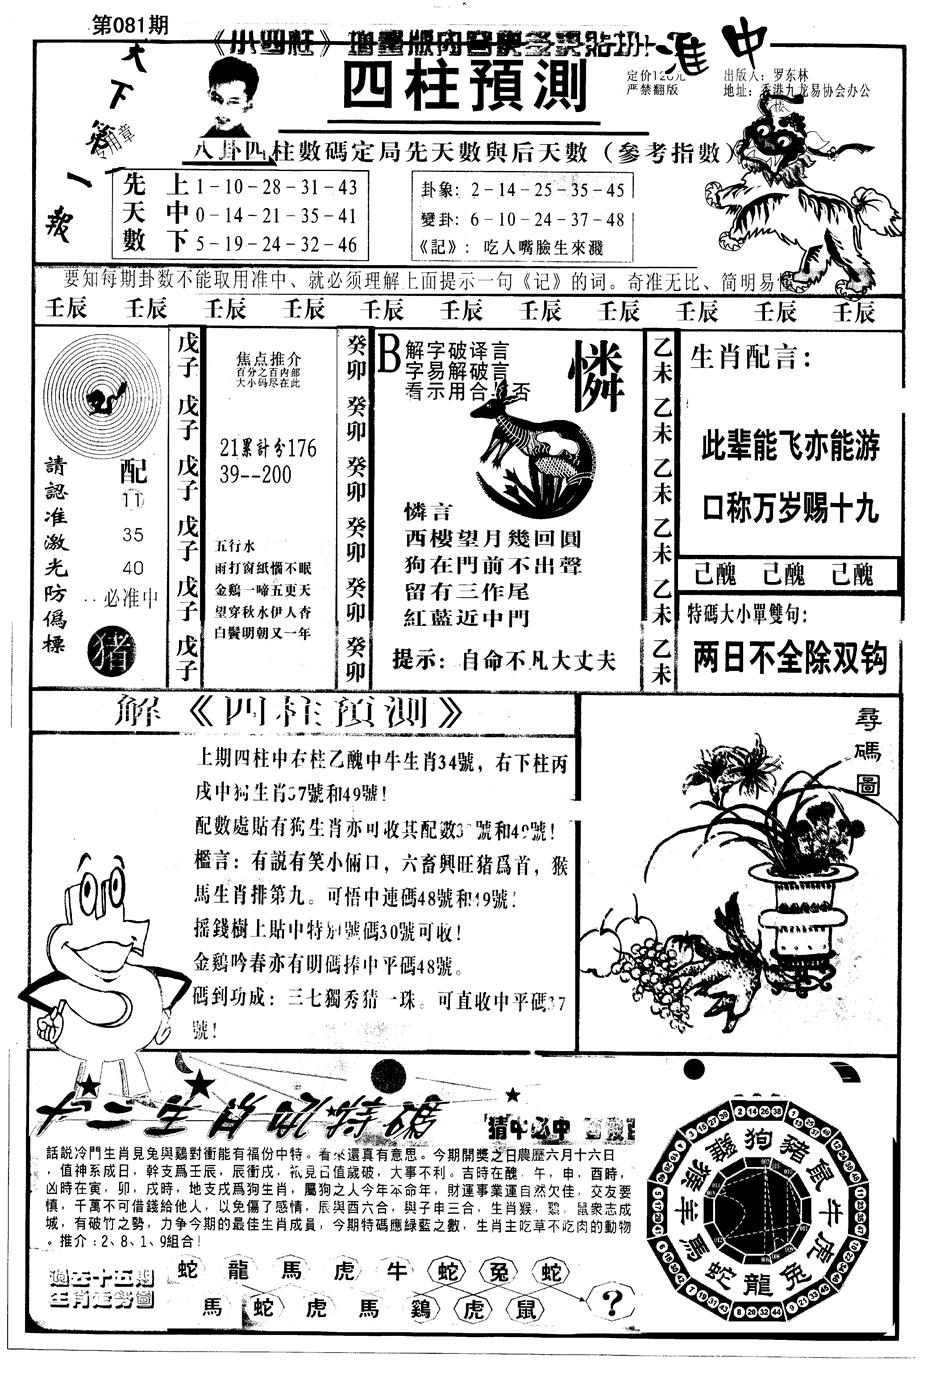 第081期
天下第一報
准中
四柱預測
严禁翻版
出版人：罗东林
地址：香港九龙易协会办公
八卦四柱數碼定局先天數與后天數（參考指數）
先天數
上 1-10-28-31-43
中 0-14-21-35-41
下 5-19-24-32-46
卦象：2-14-25-35-45
變卦：6-10-24-37-48
《記》：吃人嘴臉生來濺
要知每期卦数不能取用准中、就必须理解上面提示一句《记》的词。奇准无比、简明易
壬辰 壬辰 壬辰 壬辰 壬辰 壬辰 壬辰 壬辰 壬辰 壬辰 壬辰
請認准激光防僞標
配
11
35
40
必准中
猪
戊子 戊子 戊子 戊子 戊子 戊子
焦点推介
百分之百内部
大小码尽在此
21累計分176
39--200
五行水
雨打窗紙惱不眠
金鷄一啼五更天
望穿秋水伊人杳
白鬢明朝又一年
癸卯 癸卯 癸卯 癸卯 癸卯 癸卯
B
解字破译言
字易解破言
看示用合 否
憐
憐言
西樓望月幾回圓
狗在門前不出聲
留有三作尾
紅藍近中門
提示：自命不凡大丈夫
乙未 乙未 乙未 乙未 乙未 乙未
生肖配言：
此辈能飞亦能游
口称万岁赐十九
己醜 己醜 己醜
特碼大小單雙句：
两日不全除双钩
解《四柱預測》
上期四柱中右柱乙醜中牛生肖34號，右下柱丙
戌中狗生肖37號和49號！
配數處貼有狗生肖亦可收其配數 號和49號！
檻言：有説有笑小倆口，六畜興旺猪爲首，猴
馬生肖排第九。可悟中連碼48號和49號！
摇錢樹上貼中特别號碼30號可收！
金鷄吟春亦有明碼捧中平碼48號。
碼到功成：三七獨秀猜一珠。可直收中平碼37
號！
尋碼圖
猜中必中
話説冷門生肖見兔與鷄對衝能有福份中特。看來還真有意思。今期開獎之日農歷六月十六日
，值神系成日，幹支爲壬辰，辰衝戌，衹見日值歲破，大事不利。吉時在醜，午，申，酉時，
凶時在寅，卯，戌時，地支戌爲狗生肖，屬狗之人今年本命年，財運事業運自然欠佳，交友要
慎，千萬不可借錢給他人，以免傷了感情，辰與酉六合，與子申三合，生肖猴，鷄，鼠衆志成
城，有破竹之勢，力争今期的最佳生肖成員，今期特碼應緑藍之數，生肖主吃草不吃肉的動物
。推介：2、8、1、9組合！
過去十五期
生肖走勢圖
蛇 龍 馬 虎 牛 蛇 兔 蛇
馬 蛇 虎 馬 鷄 虎 鼠 ?
狗 豬 鼠 牛 虎 兔 龍 蛇 馬 羊 猴 雞